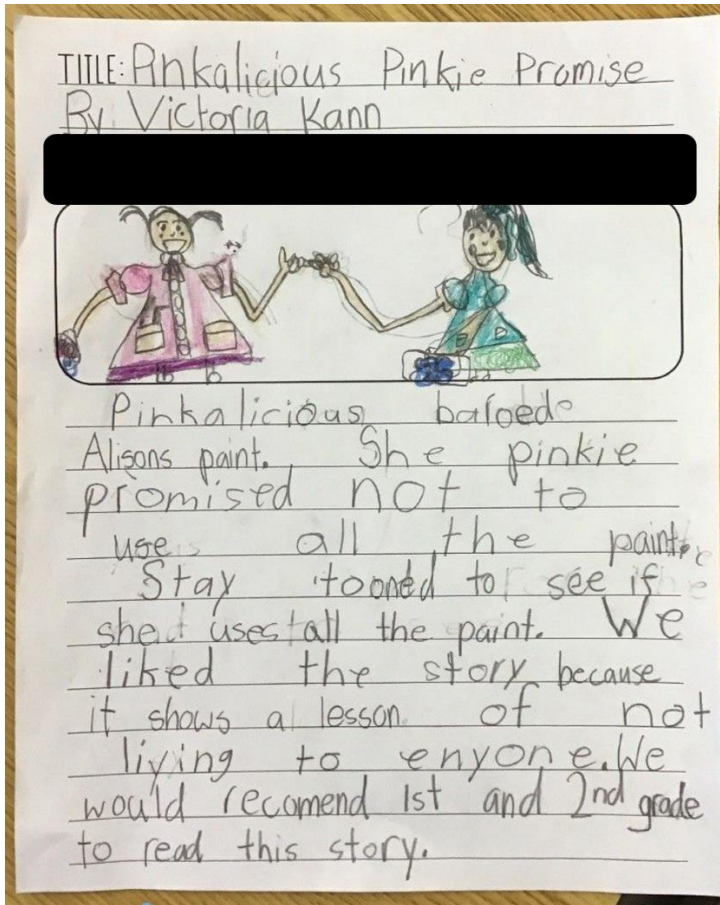 TITLE: Pinkalicious Pinkie Promise
By Victoria Kann
Pinkalicious baroed
Alisons paint. She pinkie
promised not to
use all the paint.
Stay tooned to see if
she uses all the paint. We
liked the story because
it shows a lesson of not
liying to enyone. We
would recomend 1st and 2nd grade
to read this story.